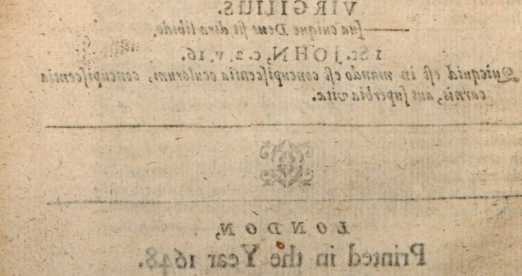 VIRGILIUS.
——ſua cuique Deus fit dira libido.
1 St. JOHN. c. 2. v. 16.
Quicquid eſt in mundo eſt concupiſcentia oculorum, concupiſcentia
carnis, aut ſuperbia vitæ.
LONDON,
Printed in the Year 1648.